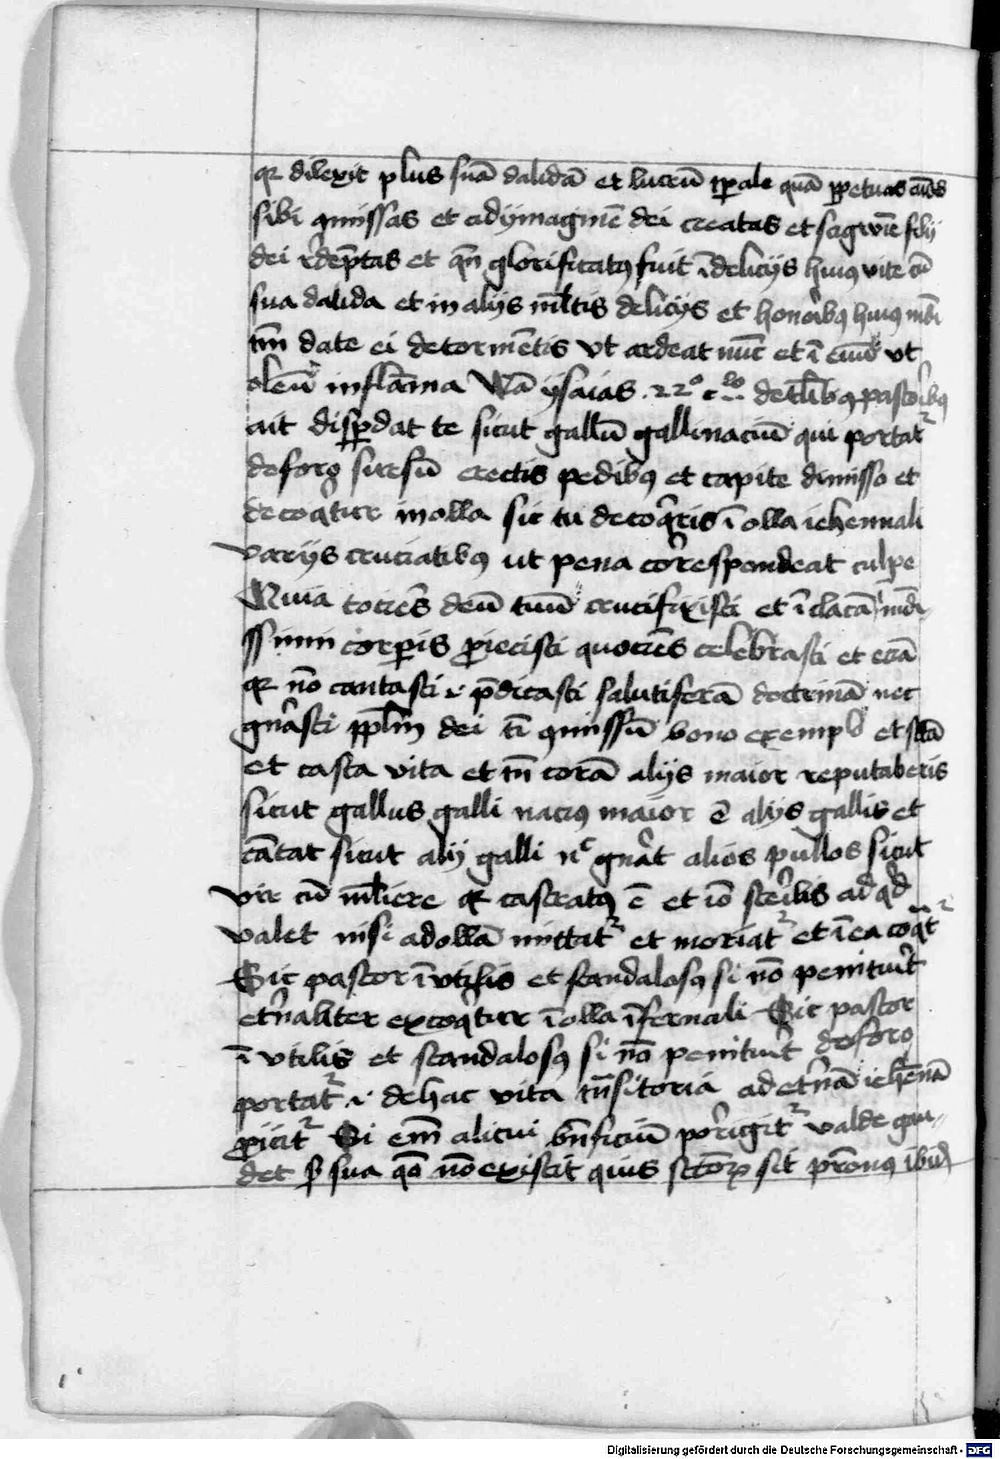 qꝛ dilexit plus suā dalidā et lucrū tꝑale quā ꝑpetuas
sibi 9missas et adymaginē dei creatas et sāgwīe filij
dei r̄dēptas et qn̄ glorificatꝰ fuit ī delicijs huiꝰ vite cū
sua dalida et in alijs ml̄tis delicijs et honoribꝰ huiꝰ mūdi
tm̄ date ei detormētis vt ardeat nūc et ī euū vt
oleū inflāma Nā ysaias .22º cº detalibꝰ pastoribꝰ
ait disꝑdat te sicut gallū gallinaciū qui portatᷣ
deforo sursū erectis pedibꝰ et capite dimisso et
decoqᷣtur in olla sic tu decoqᷣris ī olla iehennali
varijs cruciatibꝰ ut pena correspondeat culpe
Quia tociēs deū tuū crucifixisti et ī clacā
ssimi corꝑis ꝓiecisti quociēs celebrasti et eciā
qꝛ nō cantasti .i. p̄dicasti salutiferā doctrinā nec
gn̄asti ppl̄m dei tī 9missū bono exemplo et scā
et casta vita et tn̄ corā alijs maior reputaberis
sicut gallus galli naciꝰ maior ē alijs gallis et
cātat sicut alij galli nͨ gn̄at alios pullos sicut
vir cū ml̄iere qꝛ castratꝰ ē et iō sterilis ad qd
valet nisi adollā mittatᷣ et moriatᷣ et ī ea coqᷣtᷣ
Sic pastor īvtilis et scandalosꝰ si nō penituīt
etn̄aliter excoqᷣtur ī olla īfernali Sic pastor
ī vtilis et scandalosꝰ si nō penituīt deforo
portatᷣ .i. dehac vita tn̄sitoria ad etn̄ā iehēnā
ꝓicitᷣ Si em̄ alicui bn̄ficiū porrigitᷣ valde gau-
det sꝫ sua qō nō existit quis sctōꝝ sit pr̄onꝰ ibidē
Digitalisierung gefördert durch die Deutsche Forschungsgemeinschaft - DFG